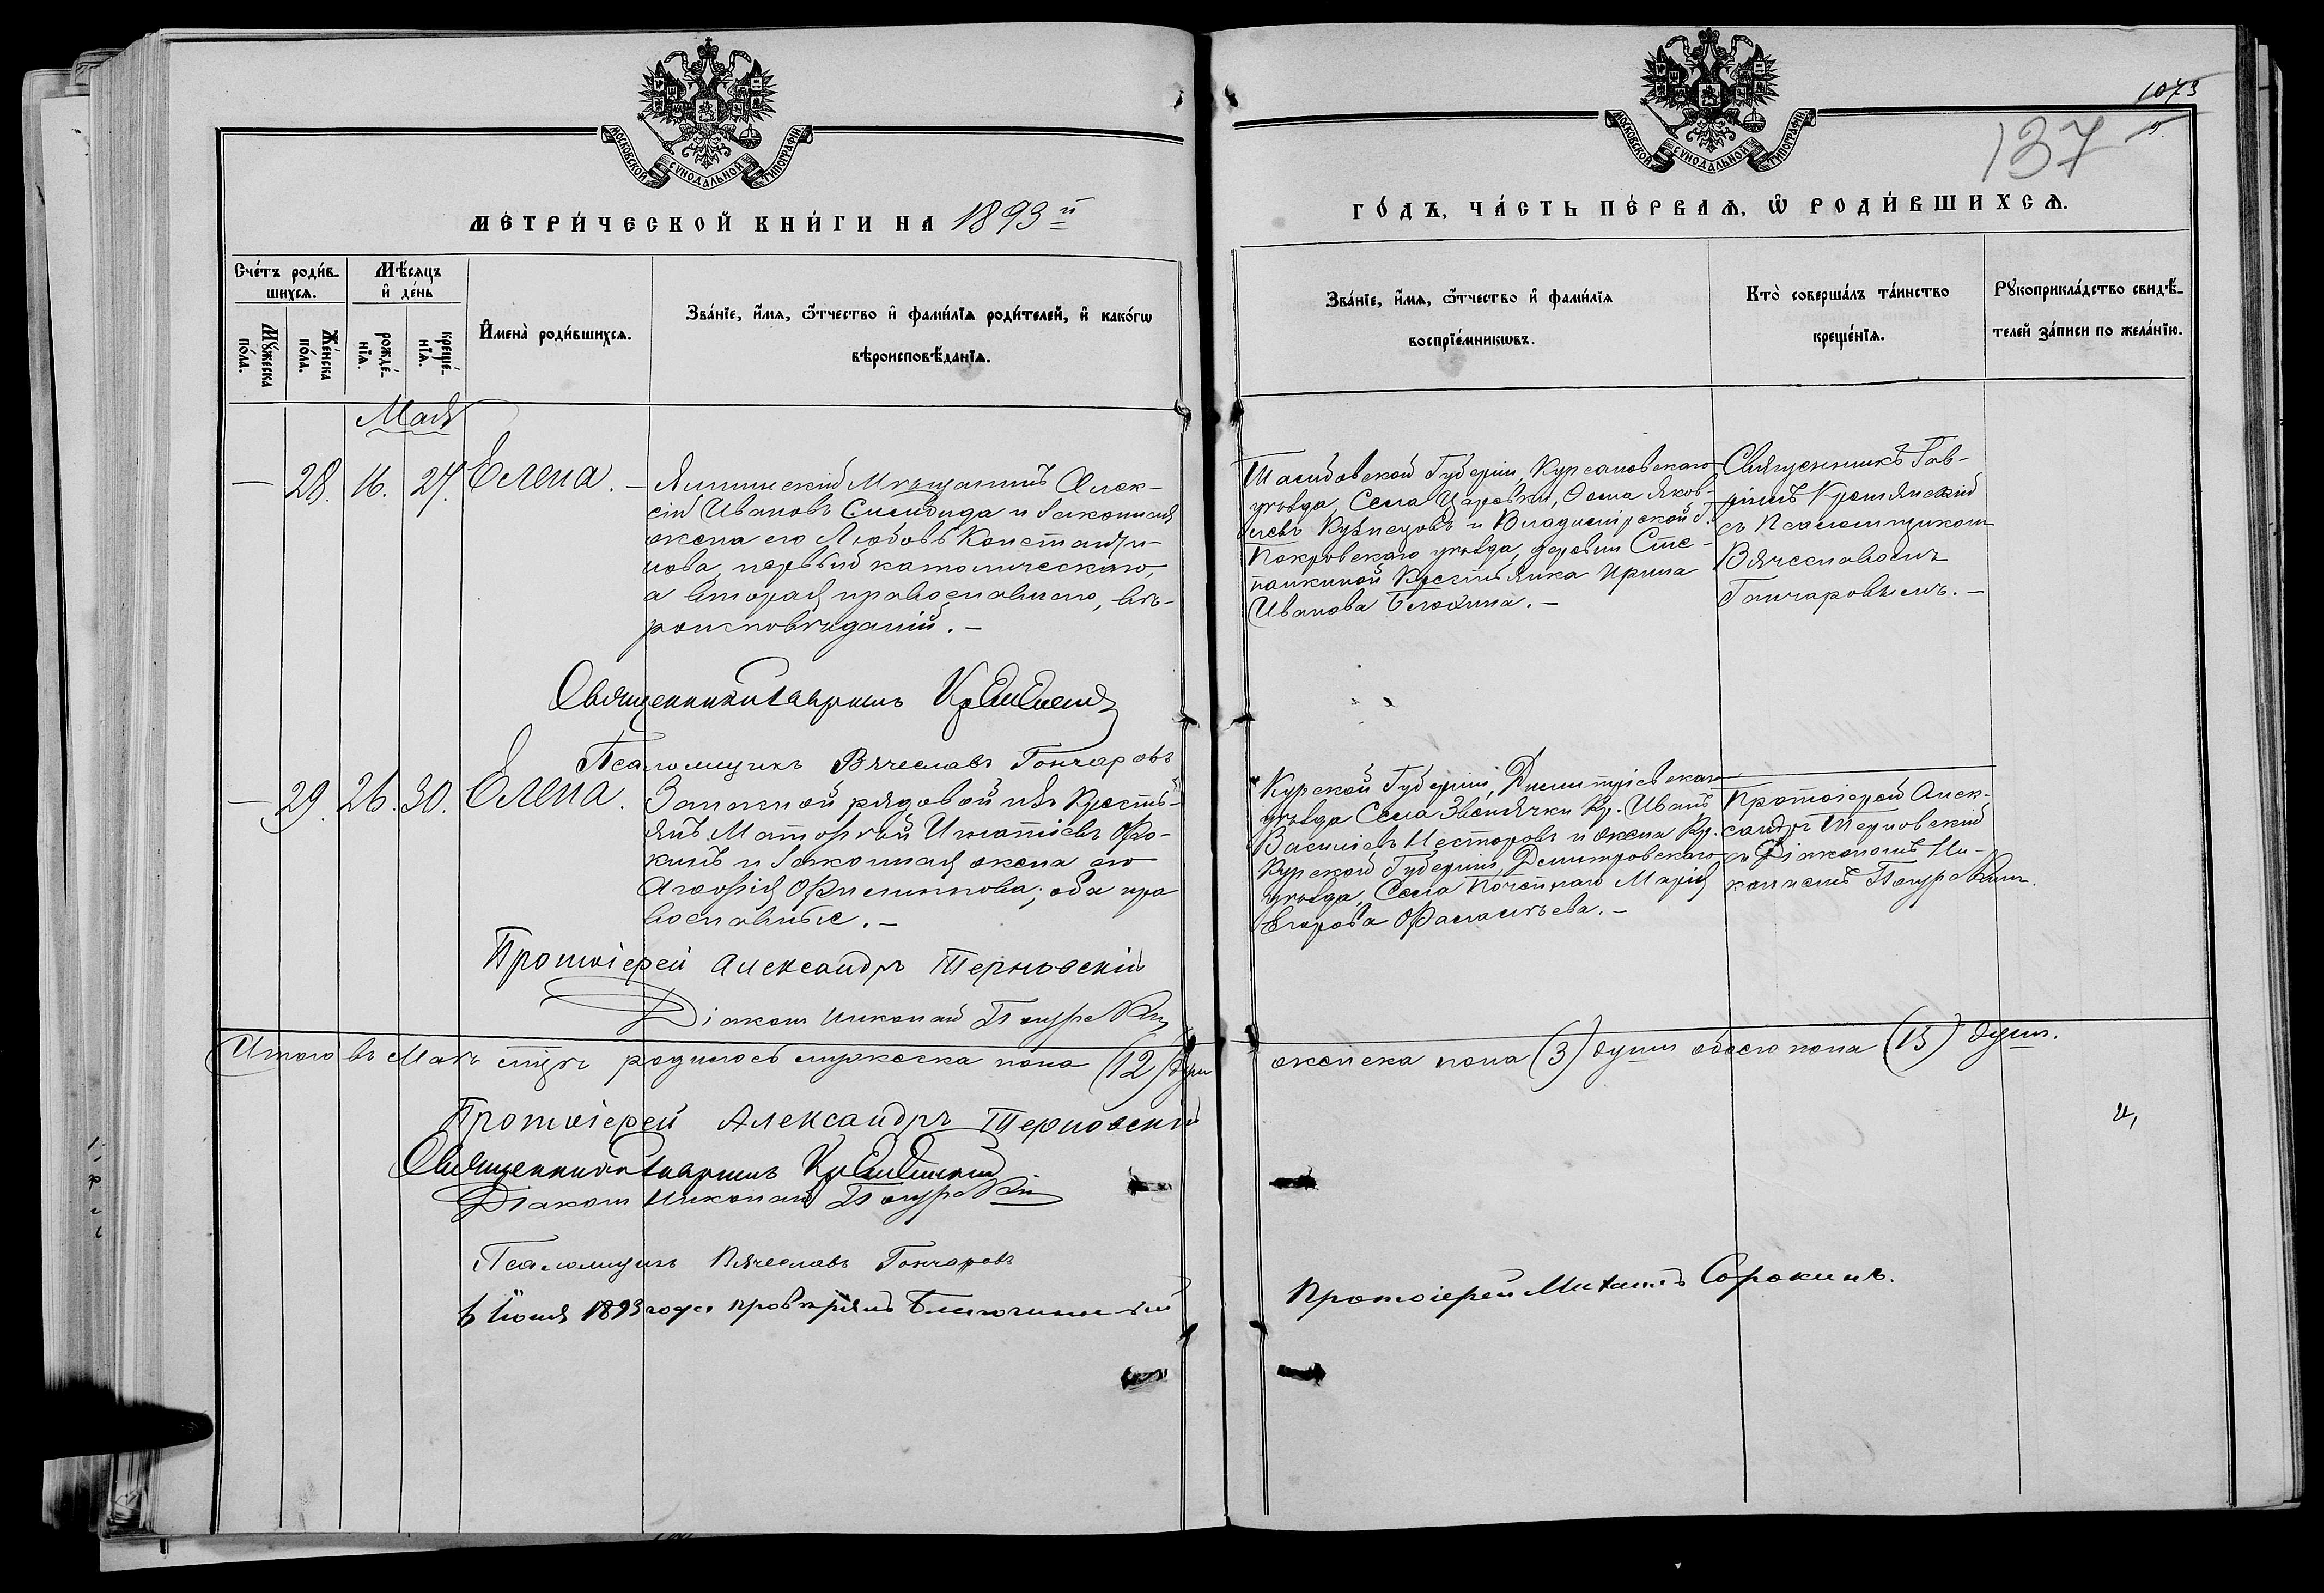 МОСКОВСКОЙ СѴНОДАЛЬНОЙ ТИПОГРАФІИ
МЕТРИ́ЧЕСКОЙ КНИ́ГИ НА 1893 й
Сче́тъ роди́в-
шихсѧ.
Мѣ́сѧцъ
и҆ де́нь
Мꙋ́жеска
по́ла.
Же́нска
по́ла.
рожде́-
нїѧ.
креще́-
нїѧ.
И҆мена̀ роди́вшихсѧ.
Зва́нїе, и҆́мѧ, ѻ҆́тчество и҆ фами́лїѧ роди́телей, и҆ како́гѡ
вѣроисповѣ́данїѧ.
Мая
— 28. 16. 27. Елена. —
Мѣщанинъ Алек-
сій Ивановъ и законная
жена его Любовь Константи-
нова, первый католическаго,
а вторая православнаго, вѣ-
роисповѣданій. —
Священникъ Гавріилъ
Псаломщикъ Вячеславъ Гончаровъ
— 29. 26. 30. Елена.
Запасной рядовой изъ кресть-
янъ Матөѣй Игнатіевъ Өо-
кинъ и законная жена его
Агаөія Филиппова; оба пра
вославные. —
Протоіерей Александръ Терновскій
Діаконъ Николай
Итого въ Маѣ мцѣ родилось мужеска пола (12) душ
Протоіерей Александръ Терновскій
Священникъ Гавріилъ
Діаконъ Николай
Псаломщикъ Вячеславъ Гончаровъ
6 Іюня 1893 года провѣрялъ Благочинный
1073
137
МОСКОВСКОЙ СѴНОДАЛЬНОЙ ТИПОГРАФІИ
ГО́ДЪ, ЧА́СТЬ ПЕ́РВАѦ, Ѡ РОДИ́ВШИХСѦ.
Зва́нїе, и҆́мѧ, ѻ҆́тчество и҆ фами́лїѧ
воспрїе́мникѡвъ.
Кто̀ соверша́лъ та́инство
креще́нїѧ.
Рꙋкоприкла́дство свидѣ́-
телей за́писи по жела́нїю.
Тамбовской Губерніи, Кирсановскаго
уѣзда, Села Царевки, Өома Яков-
левъ Кузнецовъ и Владимірской г.
Покровскаго уѣзда, деревни Сте-
панкиной Крестьянка Ирина
Иванова
Священникъ Гав-
ріилъ
съ Псаломщикомъ
Вячеславомъ
Гончаровымъ. —
Курской Губерніи, Дмитріевскаго
уѣзда Села Звенячки Кр. Иванъ
Василіевъ Нестеровъ и жена Кр.
Курской Губерніи, Дмитровскаго
уѣзда, Села Марія
Егорова —
Протоіерей Алек-
сандръ Терновскій
съ Діакономъ Ни-
колаемъ
женска пола (3) души обоего пола (15) душъ.
Протоіерей Михаилъ Сорокинъ.